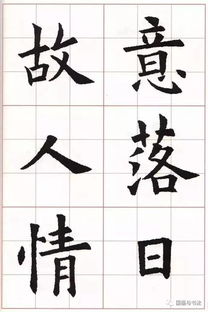 意落日
故人情
国画与书法